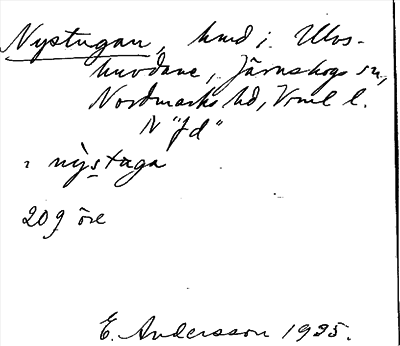 Nystugan, hmd i Ulvs-
huvdane, Järnskogs sn,
Nordmarks hd, Vrml l.
N "Jd"
: nỳstuga
209 öre
E. Andersson 1935.